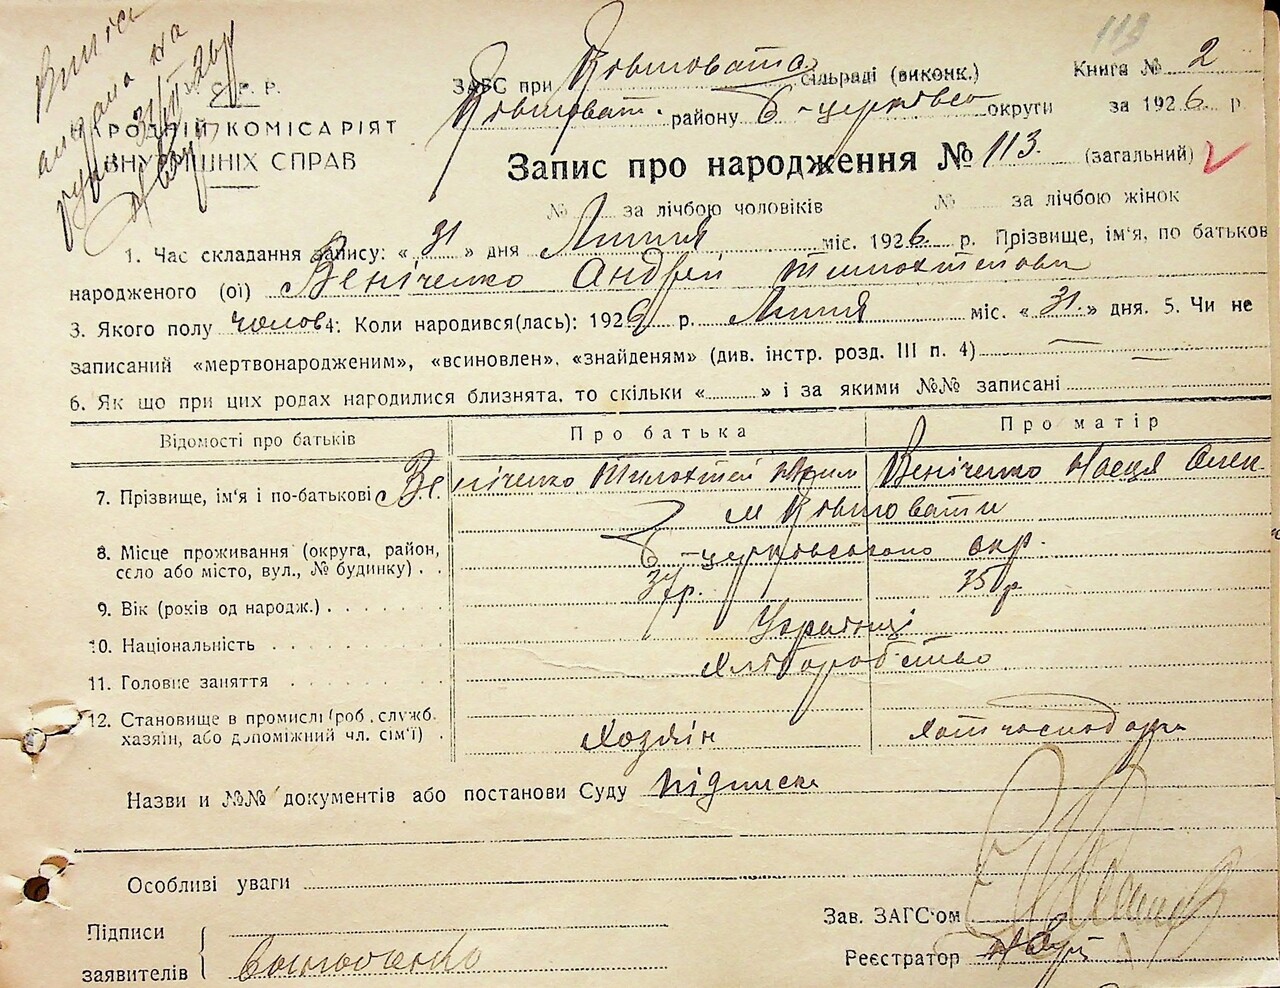 113
Випис
видано на
руки 31/VII 26 р
С. Р. Р.
РОДНІЙ КОМІСАРІЯТ
ВНУТРІШНІХ СПРАВ
ЗАГС при Ковшовата сільраді (виконк.) Книга № 2
Ковшоват. району Б-церківсь округи за 1926 р
Запис про народження № 113. (загальний)
№ за лічбою чоловіків № за лічбою жінок
1. Час складання запису: « 31 » дня Липня міс. 1926 р. Прізвище, ім'я, по батьков
народженого (ої) Веніченко Андрей Тимохтейови
3. Якого полу чолов 4. Коли народився(лась): 1926 р. Липня міс. « 31. » дня. 5. Чи не
записаний «мертвонародженим», «всиновлен», «знайденям» (див. інстр. розд. III п. 4)
6. Як що при цих родах народилися близнята, то скільки « » і за якими №№ записані
Відомості про батьків Про батька Про матір
7. Прізвище, ім'я і по-батькові Веніченко Тимохтей Веніченко Настя Олек-
м Ковшовати
8. Місце проживання (округа, район, Б-церковського окр.
село або місто, вул., № будинку) . .
9. Вік (років од народж.) 37р. 35 р
10. Національність Українці
11. Головне заняття Хліборобство
12. Становище в промислі (роб., служб.
хазяїн, або допоміжний чл. сім'ї) . Хозяїн Хатн господарка
Назви и №№ документів або постанови Суду підписка
Особливі уваги
Зав. ЗАГС'ом
Підписи
заявителів
Реєстратор